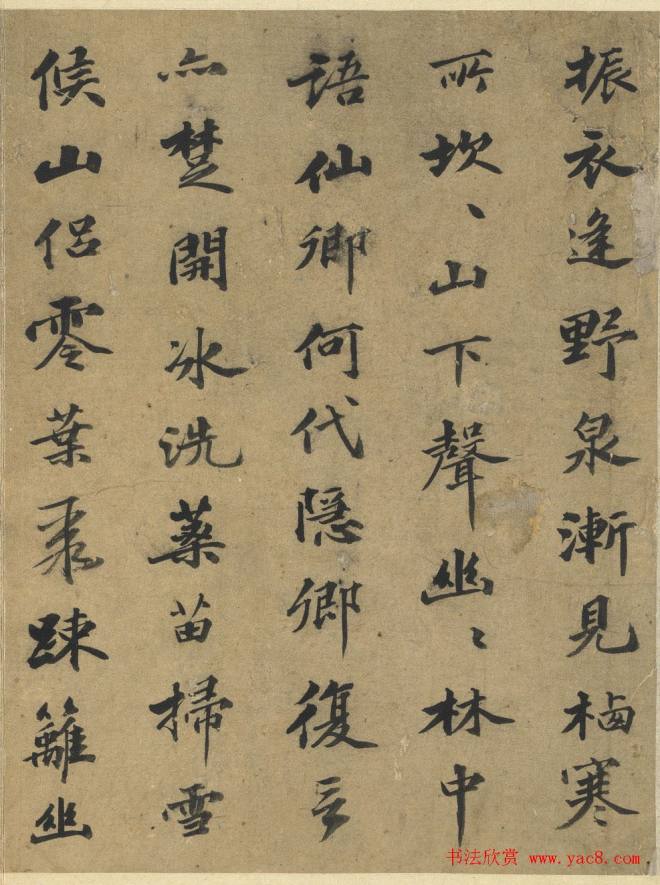 振衣逢野泉漸見栖寒
所坎、山下聲幽、林中
語仙鄉何代隱鄉復言
亦楚開冰洗藥苗掃雪
候山侣零葉聚疎籬幽
书法欣赏 www.yac8.com